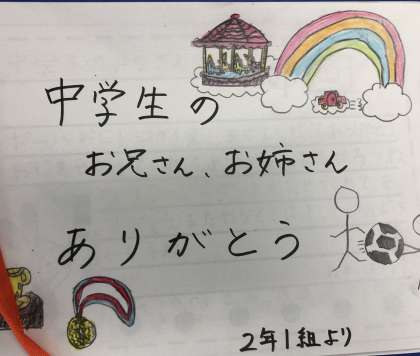 中学生の
お兄さん、お姉さん
ありがとう
2年1組より